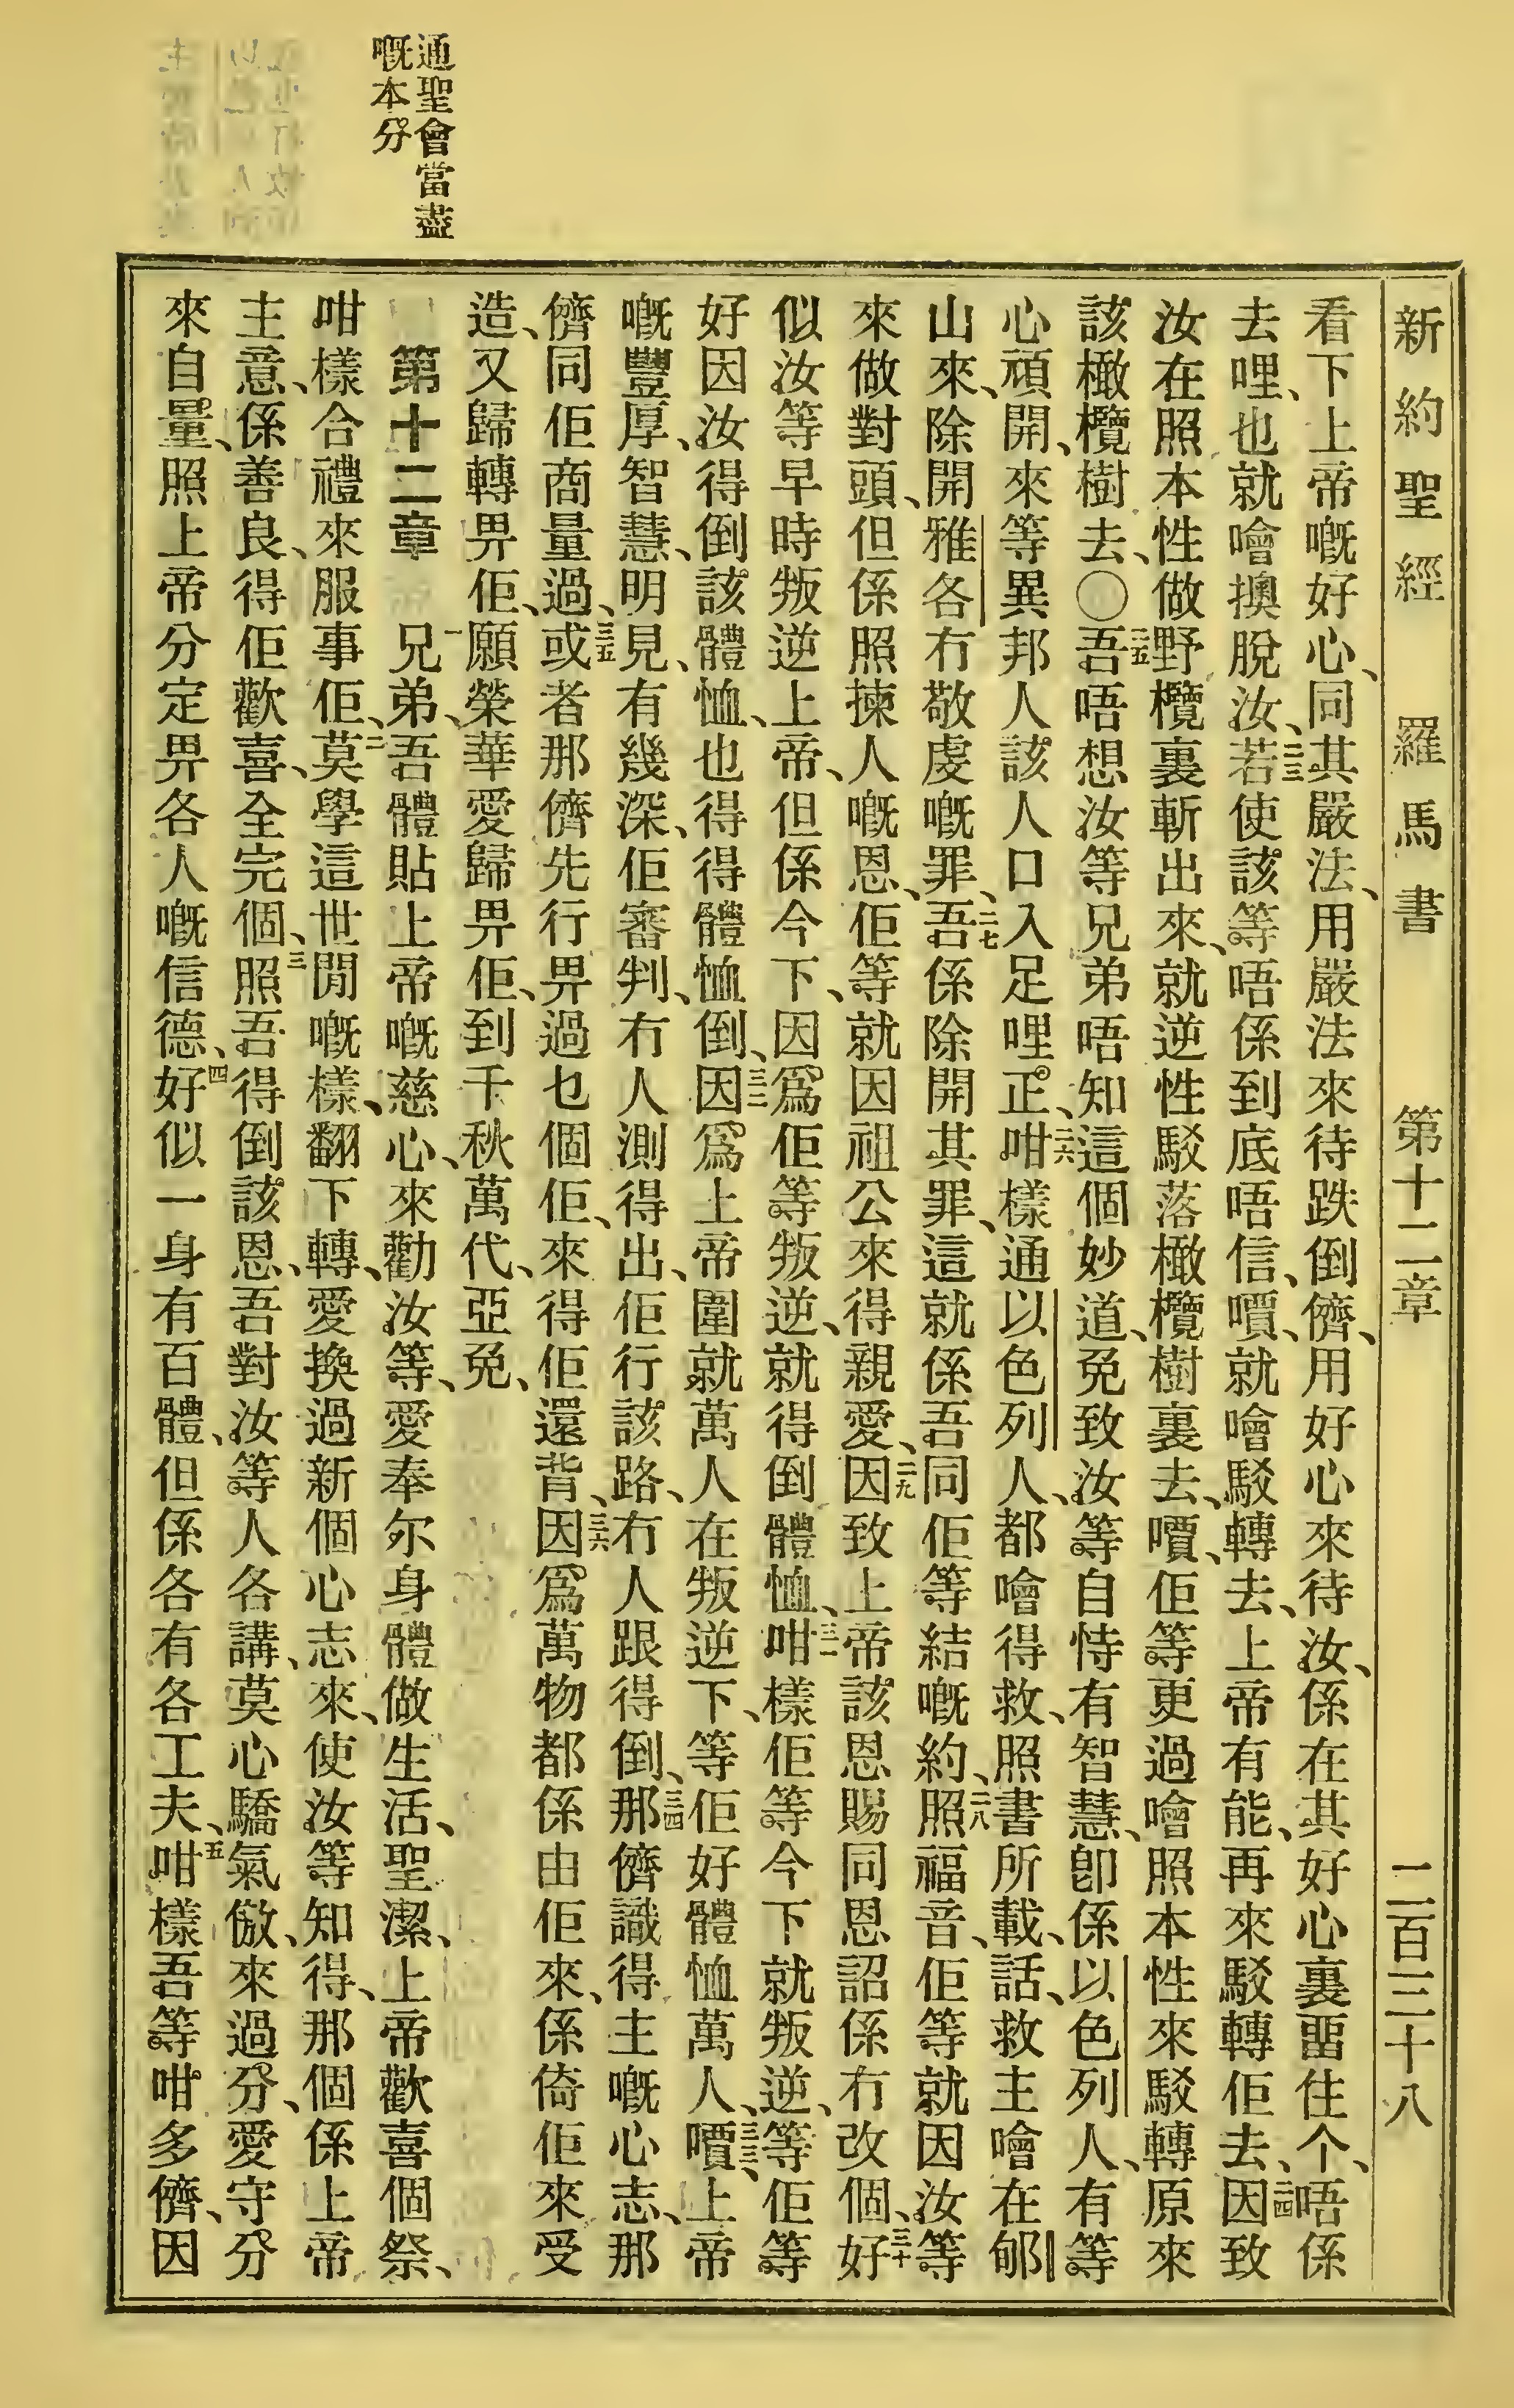 新約聖經　羅馬書　第十二章　二百三十八
看下上帝嘅好心、同其嚴法、用嚴法來待跌倒儕、用好心來待汝、係在其好心裏畱住个、唔係
去哩、也就噲㨶脫汝、二三若使該等唔係到底唔信、嘪、就噲駁轉去、上帝有能、再來駁轉佢去、二四因致
汝在照本性做野欖裏斬出來、就逆性駁落橄欖樹裏去、嘪、佢等更過噲照本性來駁轉原來
該橄欖樹去、〇二五吾唔想汝等兄弟唔知這個妙道、免致汝等自恃有智慧、卽係以色列人、有等
心頑開、來等異邦人該人口入足哩正、二六咁樣通以色列人、都噲得救、照書所載、話、救主噲在郇
山來、除開雅各冇敬虔嘅罪、二七吾係除開其罪、這就係吾同佢等結嘅約、二八照福音、佢等就因汝等
來做對頭、但係照揀人嘅恩、佢等就因祖公來得親愛、二九因致上帝該恩賜同恩詔係冇改個、三十好
似汝等早時叛逆上帝、但係今下、因爲佢等叛逆、就得倒體恤、三一咁樣佢等今下就叛逆、等佢等
好因汝得倒該體恤、也得得體恤倒、三二因爲上帝圍就萬人在叛逆下、等佢好體恤萬人、三三嘪、上帝
嘅豐厚、智慧、明見、有幾深、佢審判、冇人測得出、佢行該路、冇人跟得倒、三四那儕識得主嘅心志、那
儕同佢商量過、三五或者那儕先行畀過乜個佢、來得佢還背、三六因爲萬物都係由佢來、係倚佢來受
造、又歸轉畀佢、願榮華愛歸畀佢、到千秋萬代、亞免、
第十二章　一兄弟、吾體貼上帝嘅慈心、來勸汝等、愛奉尔身體做生活、聖潔、上帝歡喜個祭、
咁樣合禮來服事佢、二莫學這世閒嘅樣、翻下轉、愛換過新個心志來、使汝等知得、那個係上帝
主意、係善良、得佢歡喜、全完個、三照吾得倒該恩、吾對汝等人各講、莫心驕氣傲、來過分、愛守分
來自量、照上帝分定畀各人嘅信德、四好似一身有百體、但係各有各工夫、五咁樣吾等咁多儕、因
通聖會當盡
嘅本分